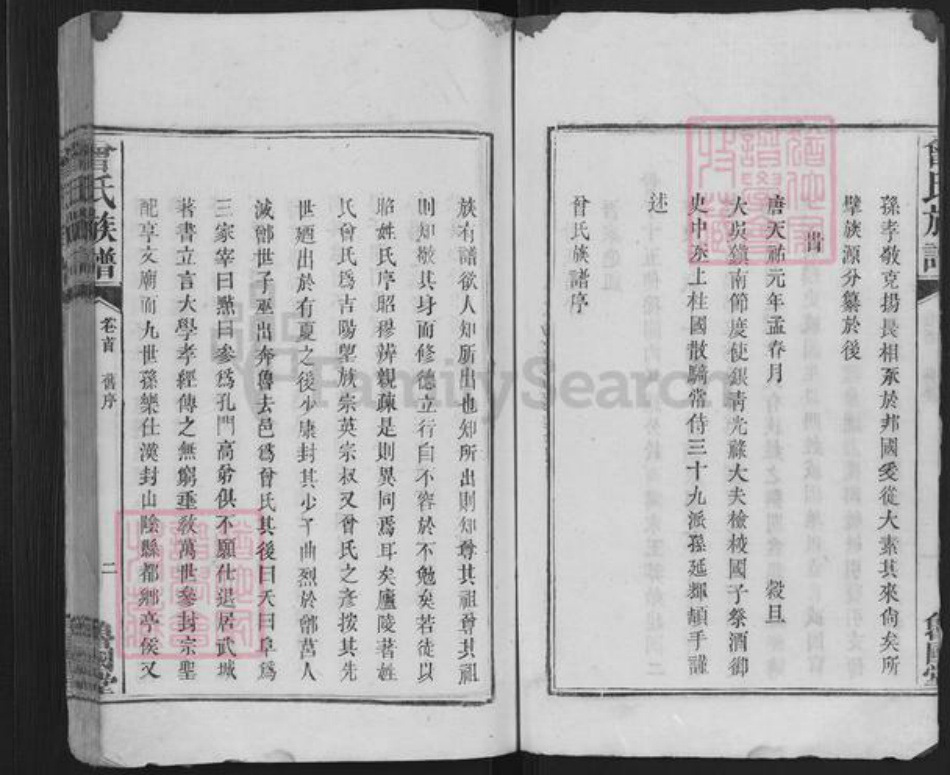 孫孝敬克揚長相承於邦國爰從大素其來尙矣所
肇族源分纂於後
唐天祐元年孟春月 穀旦
大吳鎮南節度使銀靑光祿大夫檢校國子祭酒御
史中丞上柱國散騎常侍三十九派孫延輝頓手謹
述
曾氏族譜序
族有譜欲人知所出也知所出則知尊其祖尊其祖
則知敬其身而修德立行自不容於不勉矣若徒以
昭姓氏序昭穆辨親疎是則異同焉耳矣廬陵著姓
氏曾氏爲吉陽望族宗英宗叔又曾氏之彥按其先
世廼出於有夏之後少康封其少子曲烈於鄫莒人
滅鄫世子巫出奔魯去邑爲曾氏其後曰夭曰阜爲
三家宰曰㸃曰參爲孔門高弟俱不願仕退居武城
著書立言大學孝經傳之無窮垂敎萬世參封宗聖
配享文廟而九世孫樂仕漢封山陰縣都鄉亭侯又
曾氏族譜
卷首 舊序
二
魯國堂
FamilySearch